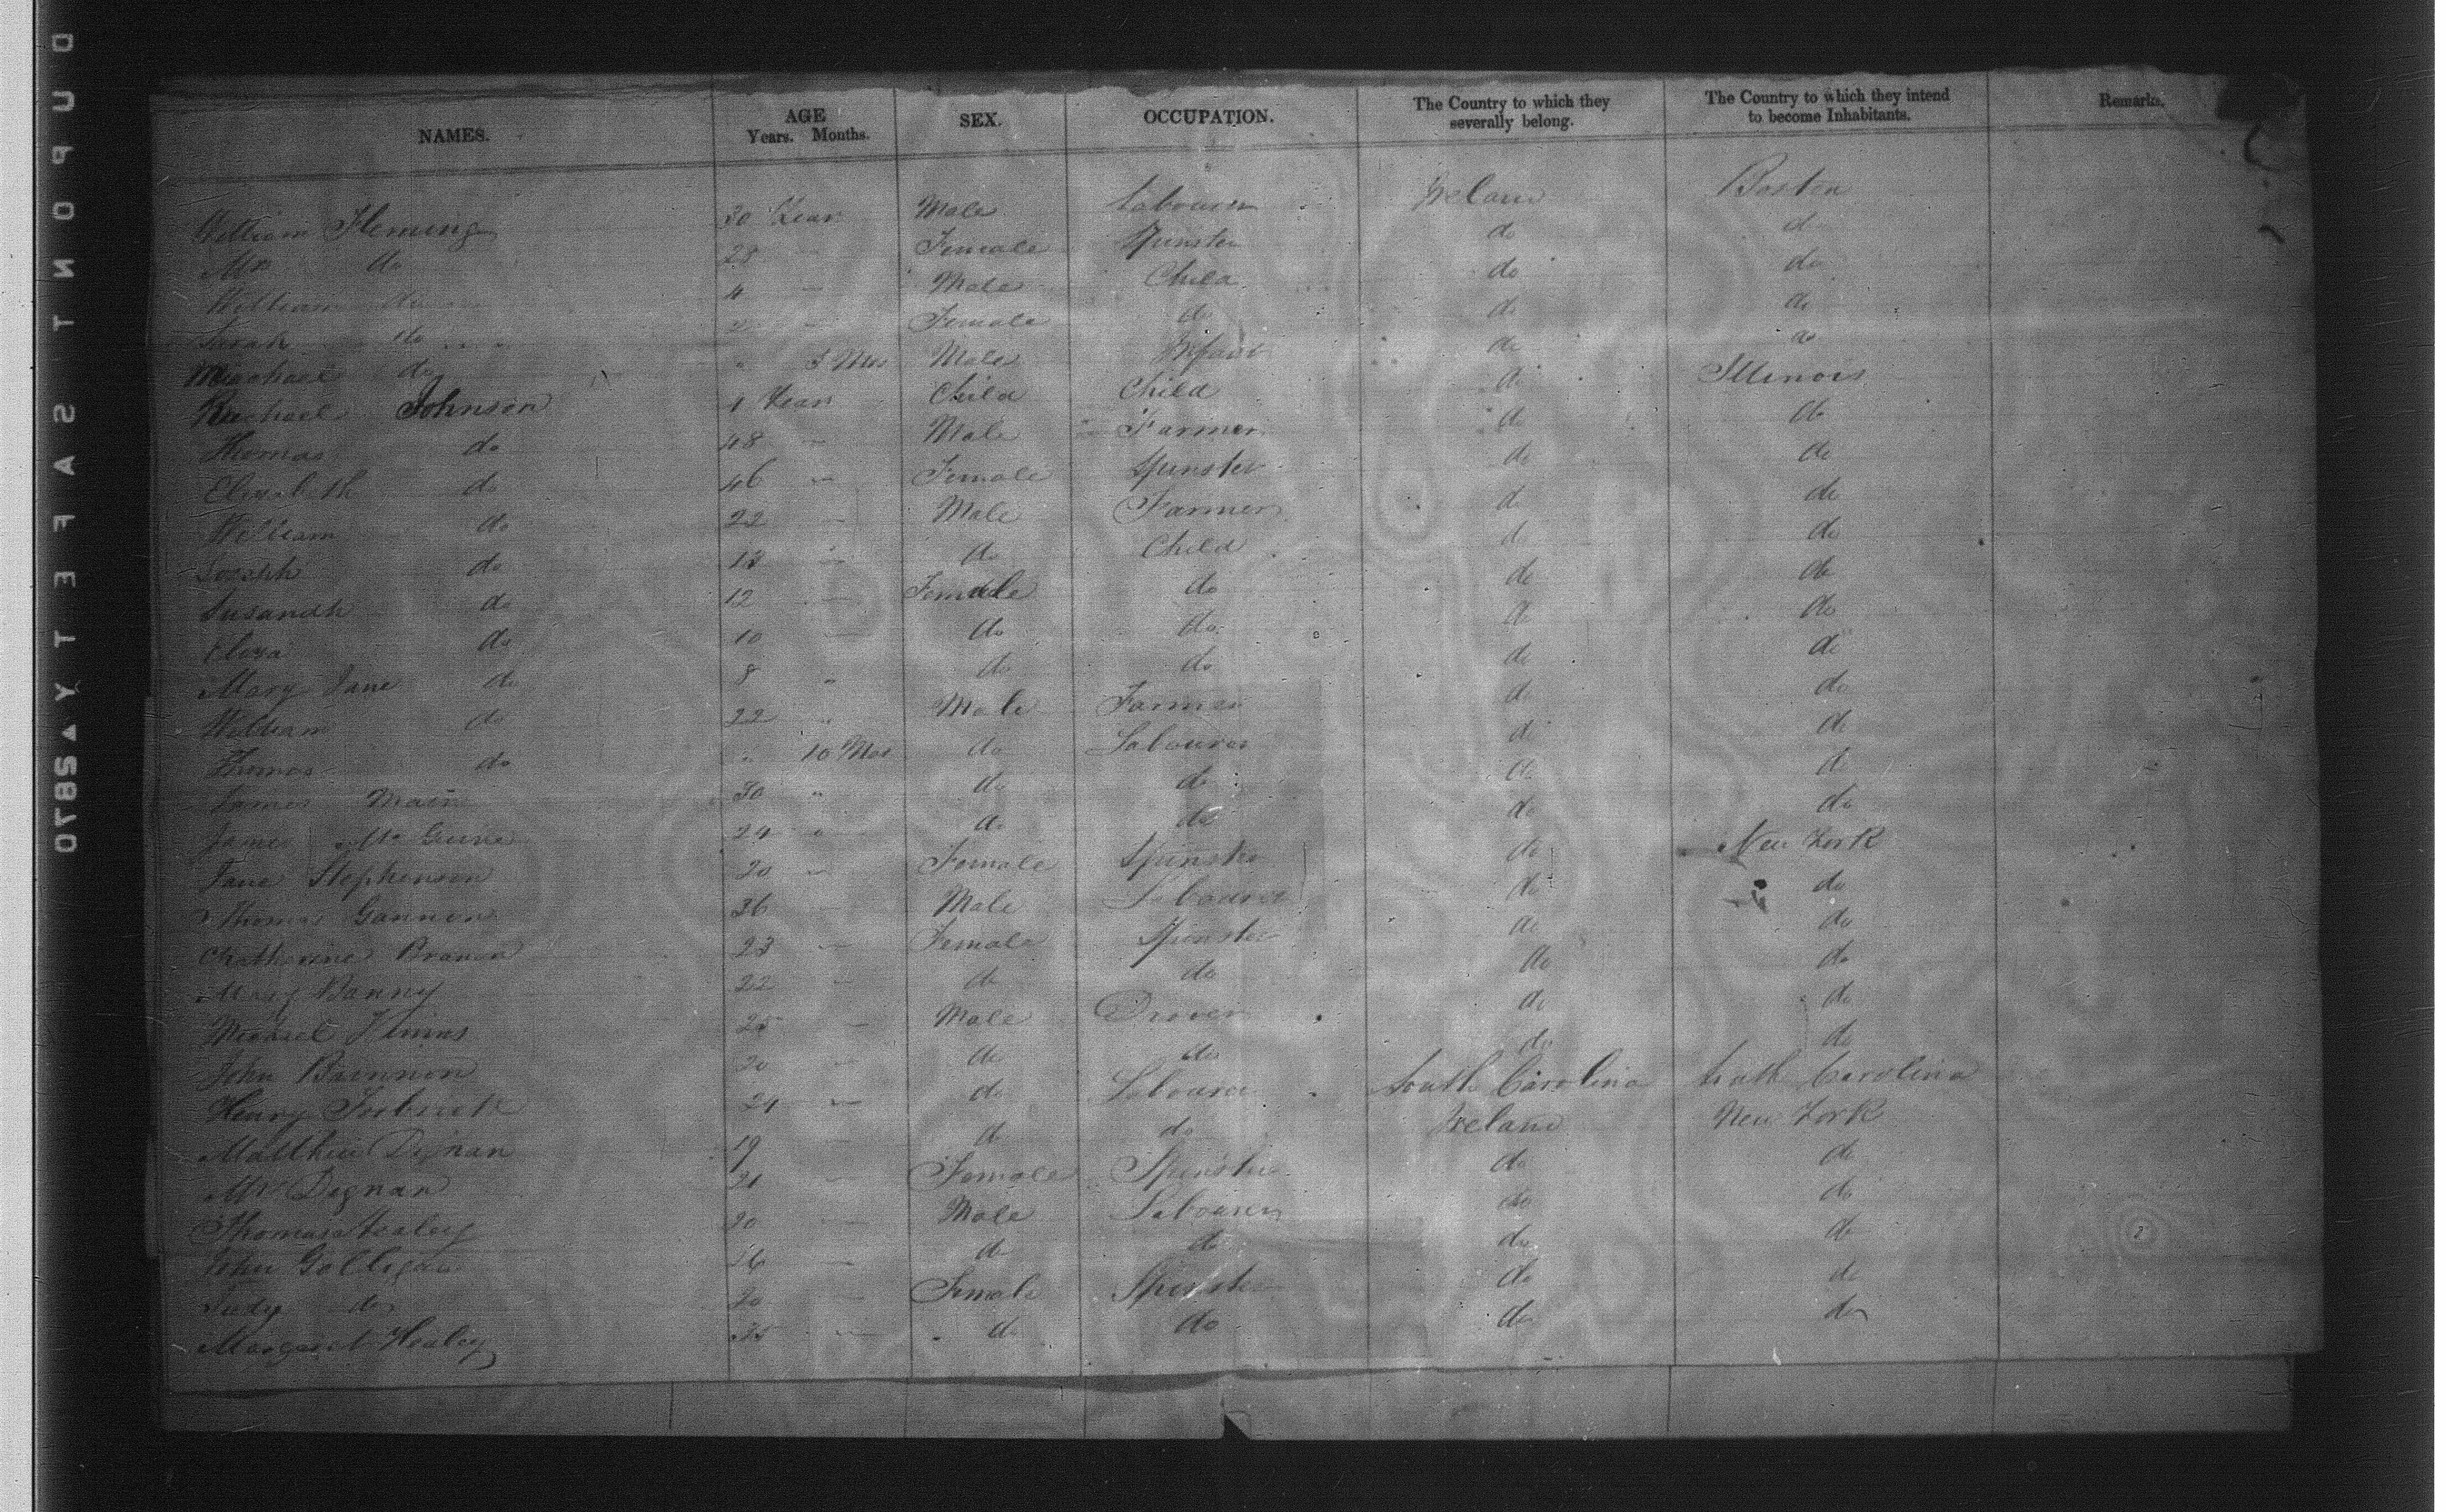 DUPONT SAFETY 0782
NAMES. AGE Years. Months. SEX. OCCUPATION. The Country to which they severally belong. The Country to which they intend to become Inhabitants. Remarks.
William Fleming 30 Year Male Labourer Ireland Boston
Mrs do 28 Female Spinster do do
William do 4 Male Child do do
Sarah do 2 Female do do do
Meachael do " 5 Mos Male Infant do do
Rachael Johnson 1 Year Child Child do Illinois
Thomas do 48 Male Farmer do do
Elizabeth do 46 Female Spinster do do
William do 22 Male Farmer do do
Joseph do 13 do Child do do
Susandh do 12 Female do do do
Eliza do 10 do do do do
Mary Jane do 8 " do do do do
William do 22 " Male Farmer do do
Thomas do " 10 Mos do Labourer do do
James Main 30 " do do do do
James 24 do do do do
Jane Stephenson 20 Female Spinster do New York
Thomas Gannon 36 Male Labourer do do
Chatherine Branon 23 Female Spinster do do
Mary 22 do do do do
Michael 25 Male Drover do do
John Bainnon 20 do do do do
Henry 21 do Labourer South Carolina South Carolina
Matthew Dignan 19 do do Ireland New York
Mrs Dignan 21 Female Spinster do do
Thomas Healey 20 Male Labourer do do
John Golligan 26 do do do do
Judy do 20 Female Spinster do do
Margaret Healey 35 do do do do